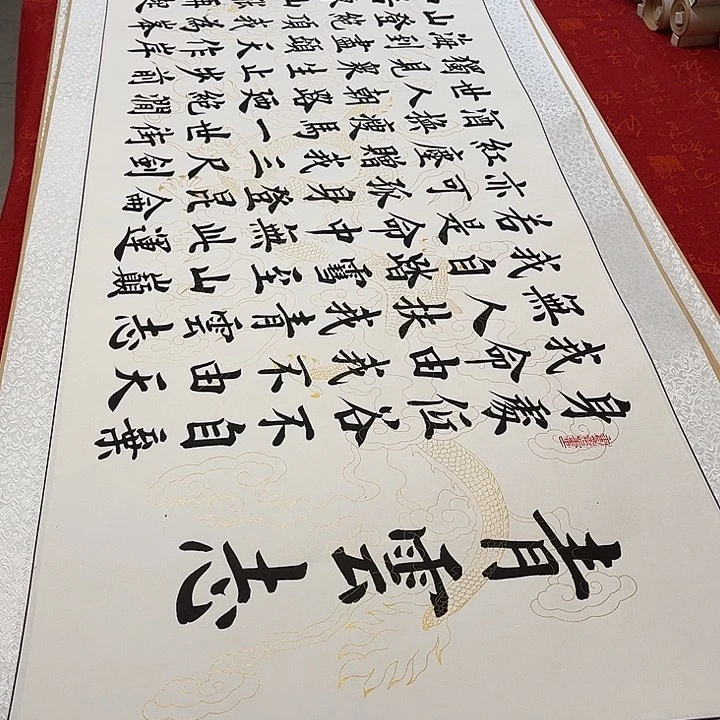 青雲志
身處低谷不自棄
我命由我不由天
無人扶我青雲志
我自踏雪至山巔
若是命中無此運
亦可孤身登昆侖
紅塵贈我三尺劍
酒換瘦馬一世街
世人朝路梗絕澗
獨見眾生止步前
海到盡頭天作岸
山登絕頂我為峯